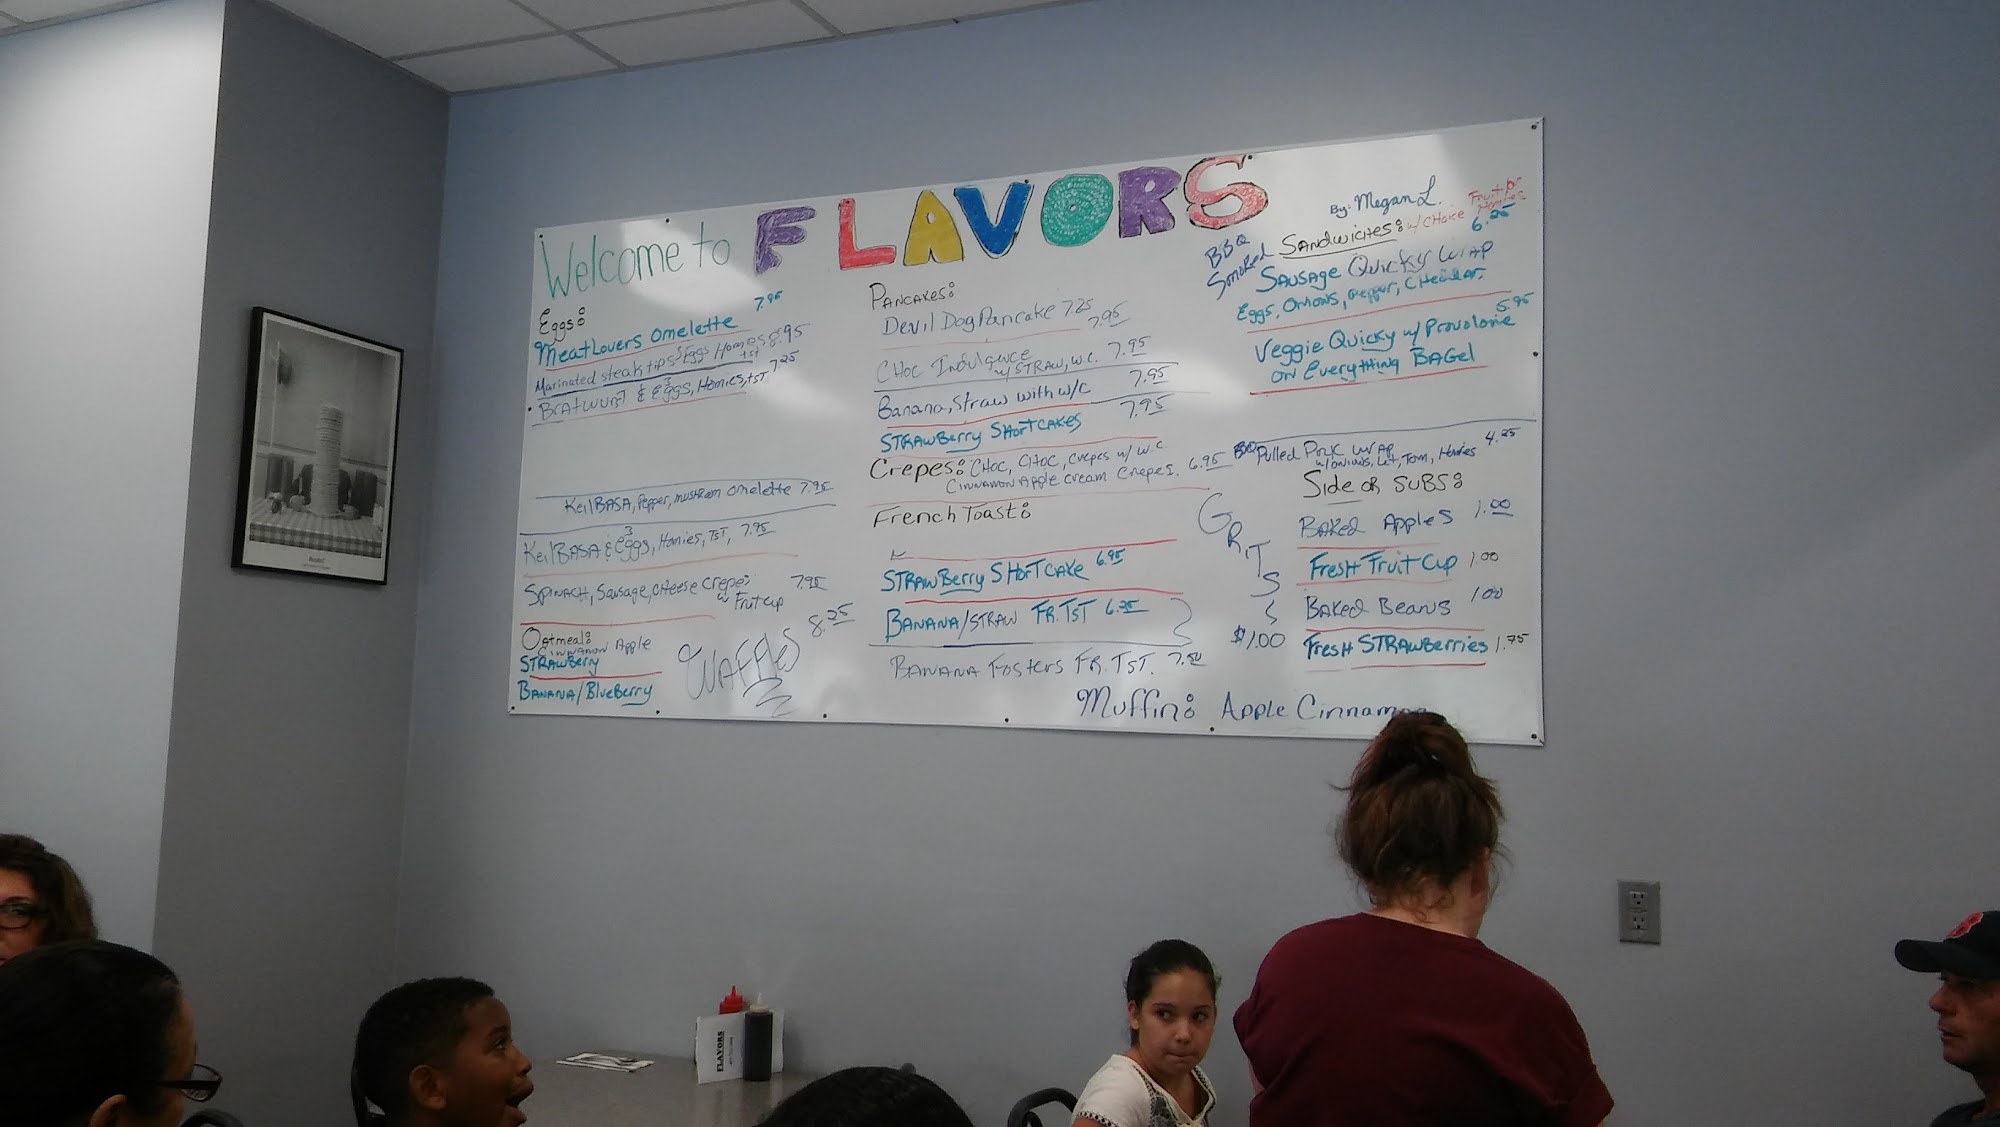 Welcome to FLAVORS
By: Megan L.
Eggs:
Meat Lovers omelette 7.95
Marinated steak tips 3 Eggs Homies 8.95
tst
Bratwurst & 3 Eggs, Homies, tST 7.25
KeilBASA, Pepper, mushroom omelette 7.95
KeilBASA & 3 eggs, Homies, TST, 7.95
SPINACH, Sausage, CHeese Crepe: 7.95
w Fruit cup
Oatmeal:
Cinnamon Apple
STRAWBerry
BANANA/BlueBerry
WAFFles 8.25
PANCAKES:
Devil Dog Pancake 7.25
7.95
CHoc Indulgence
w/ STRAW, W.C. 7.95
Banana, Straw with w/c 7.95
STRAWBerry SHortCAKES 7.95
Crepes: CHOC, CHOC, Crepes w/ w.c.
CINNAMON Apple cream Crepes. 6.95
French Toast:
STRAWBerry SHorTCAKE 6.95
BANANA/STRAW FR.TST 6.25
BANANA Fosters FR.TST. 7.50
Muffin: Apple Cinnamon
GRITS
$1.00
BBQ
Smoked
SANDWICHES: w/ CHoice Fruit or Homies
6.25
SAUSAGE Quicky Wrap
Eggs, Onions, Pepper, CHeddar.
5.95
Veggie Quicky w/ Provolone
on Everything BAGel
BBQ Pulled Pork wrAP 4.25
w/ onions, Let, Tom, Homies
Side or SUBS:
BAKed Apples 1.00
FresH Fruit Cup 1.00
BAKed Beans 1.00
FresH STRAWBerries 1.75
FLAVORS